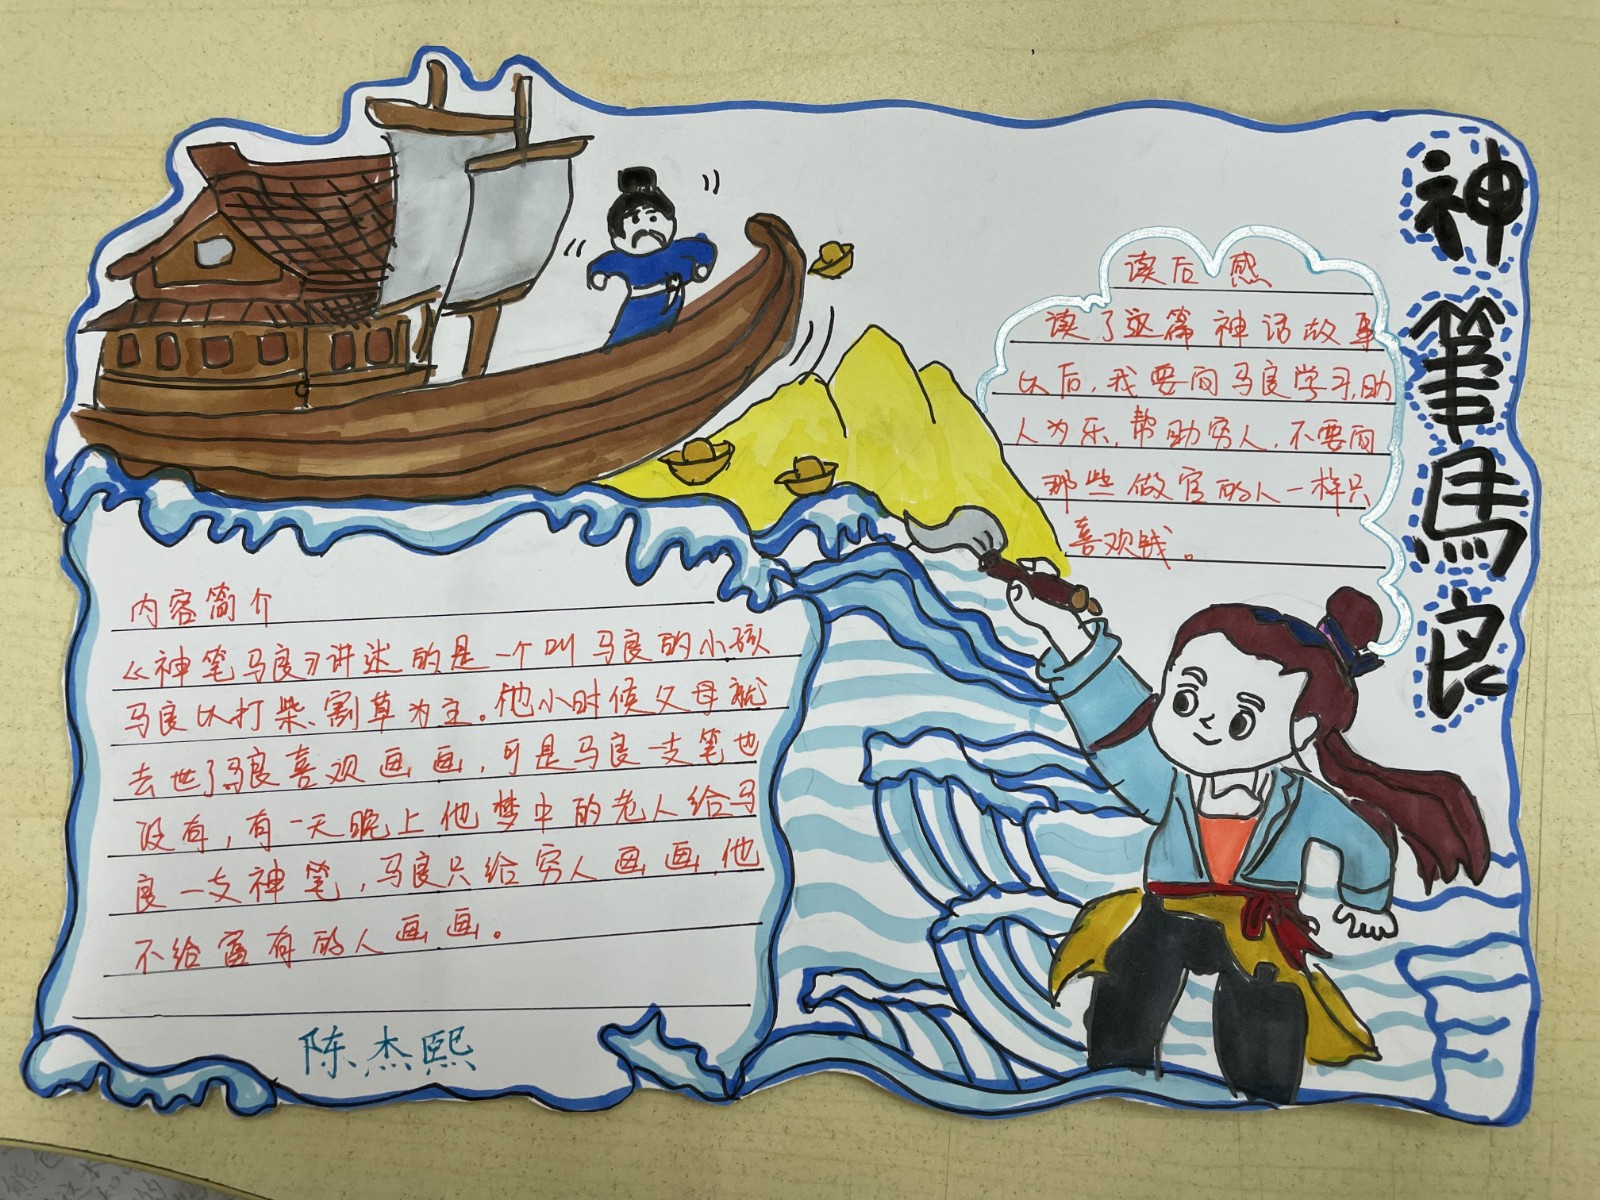 神筆馬良
读后感
读了这篇神话故事
以后,我要向马良学习,助
人为乐,帮助穷人,不要向
那些做官的人一样只
喜欢钱。
内容简介
《神笔马良》讲述的是一个叫马良的小孩
马良以打柴、割草为主。他小时候父母就
去世了马良喜欢画画,可是马良一支笔也
没有,有一天晚上他梦中的老人给马
良一支神笔,马良只给穷人画画,他
不给富有的人画画。
陈杰熙